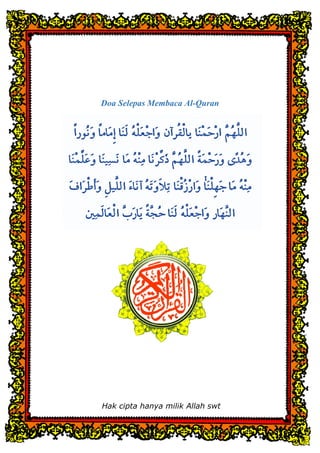 Doa Selepas Membaca Al-Quran
اللَّهُمَّ ارْحَمْنَا بِالْقُرْآنِ وَاجْعَلْهُ لَنَا إِمَاماً وَنُوراً
وَهُدًى وَرَحْمَةً اللَّهُمَّ ذَكِّرْنَا مِنْهُ مَا نَسِينَا وَعَلِّمْنَا
مِنْهُ مَا جَهِلْنَا وَارْزُقْنَا تِلاَوَتَهُ آنَاءَ اللَّيلِ وَأَطْرَافَ
النَّهَارِ وَاجْعَلْهُ لَنَا حُجَّةً يَارَبَّ الْعَالَمِينَ
القرآن الكريم
Hak cipta hanya milik Allah swt